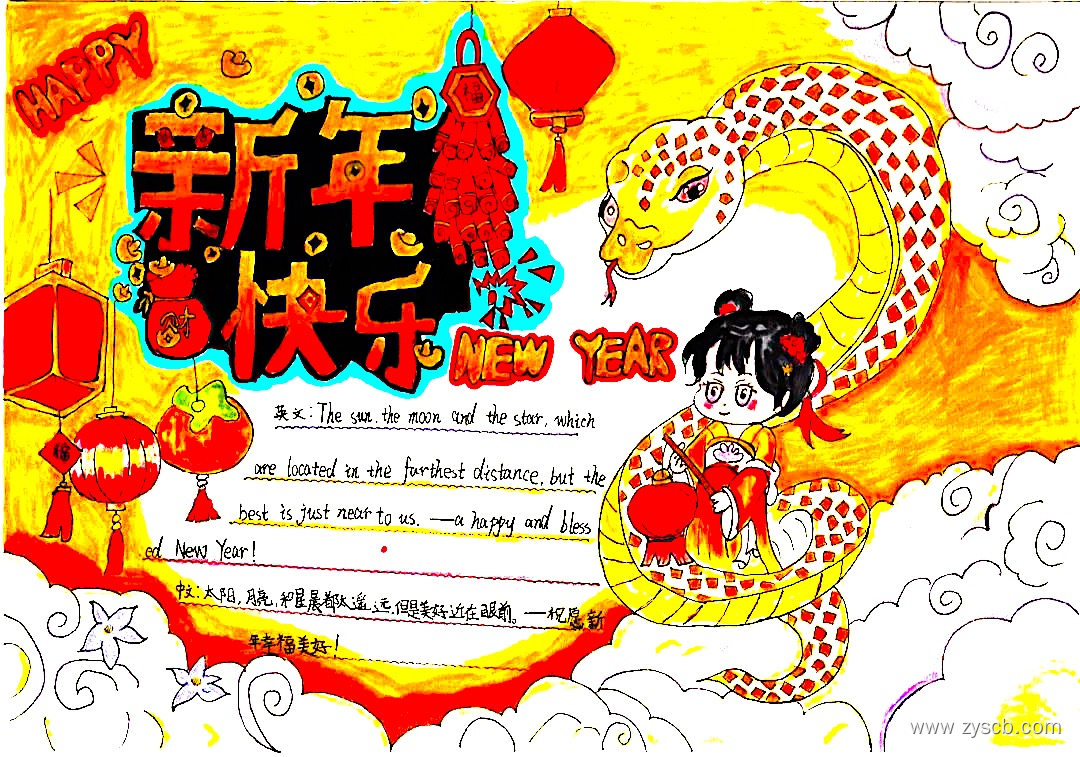 HAPPY
新年
快乐
福
财
福
NEW YEAR
英文: The sun, the moon and the star, which
are located in the farthest distance, but the
best is just near to us. —a happy and bless
ed New Year!
中文: 太阳, 月亮, 和星晨都太遥远, 但是美好近在眼前。—祝愿新
年幸福美好!
www.zyscb.com